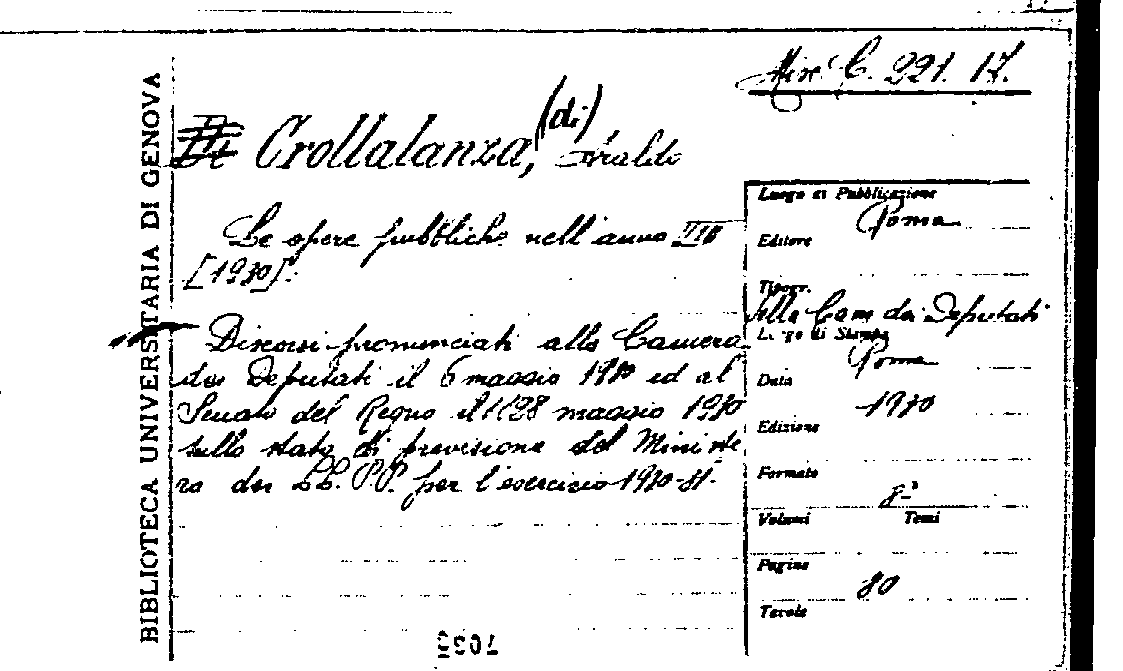 Misc. C. 221. 17.
BIBLIOTECA UNIVERSITARIA DI GENOVA
Di Crollalanza, (di) Araldo
Le opere pubbliche nell'anno VIII
[1930].
Discorsi pronunciati alla Camera
dei Deputati il 6 maggio 1930 ed al
Senato del Regno il 28 maggio 1930
sullo stato di previsione del Ministe
ro dei LL. PP. per l'esercizio 1930-31.
Luogo di Pubblicazione
Roma
Editore
Tipogr.
della Cam dei Deputati
Luogo di Stampa
Roma
Data
1930
Edizione
Formato
8º
Volumi Tomi
Pagine
80
Tavole